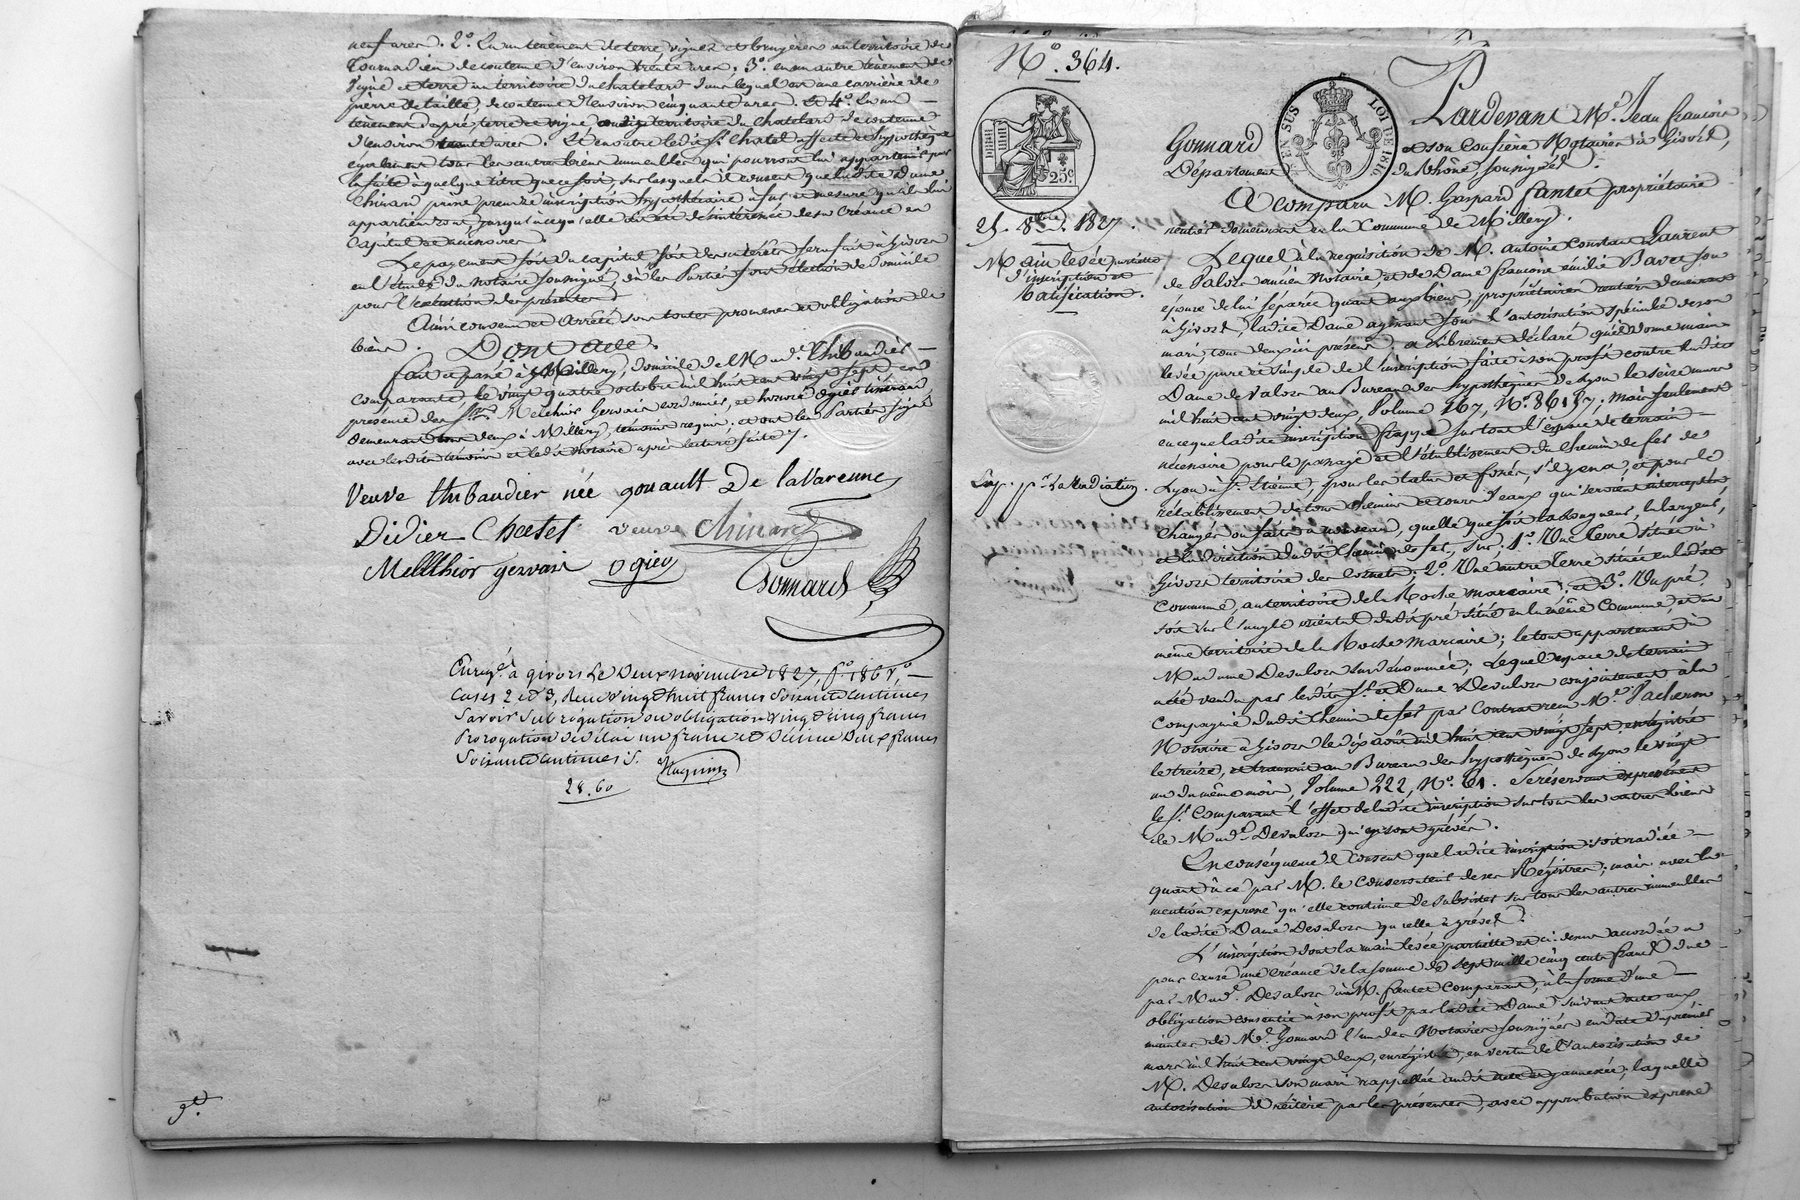 neuf ares. 2º. En un tènement de terre, vignes et bruyères au territoire de
Tournad en de contenue d'environ trente ares. 3º. en un autre tènement de
vigne et terre au territoire du chatelard dans lequel est une carrière de
pierre de taille, de contenue d'environ cinquante ares. et 4º. En un
tènement de pré, terre et vigne territoire du Chatelard de contenue
d'environ ares. Et en outre ledit Sr. Chatel affecte et hypothèque
également tous les autres biens immeubles qui pourront lui appartenir par
la suite à quelque titre que ce soit, sur lesquels il consent que ladite Dame
Chinard prenne inscription hypothécaire à fur et mesure qu'ils lui
appartiendront, jusqu'à ce qu'elle de sa créance en
capital et accessoires.
Le payement soit du capital soit des intérêts sera fait à Givors
en l'étude du notaire soussigné, où les Parties font élection de domicile
pour l'exécution des présentes.
Ainsi convenu et arrêté sous toutes promesses et obligation de
biens. Dont acte.
fait et passé à Millery, domicile de Made. Thibaudier
comparante le vingt quatre octobre mil huit cent vingt sept en
présence des Srs. Melchior Gervais cordonnier, et Ogier
demeurant tous deux à Millery, témoins requis; et ont les Parties signé
avec lesdits témoins et ledit notaire après lecture faite.
Veuve thibaudier née gouault De lavarenne
Didier Chatel veuve Chinard
Mellthior gervais Ogier
Gonnard
Enregé. à givors le Deux novembre 1827, fº. 186 Vº.
cases 2 et 3, Reçu vingt huit francs soixante centimes
Savoir Subrogation ou obligation vingt cinq francs
Prorogation de délai un franc et Décime Deux francs
Soixante centimes.
28.60
Nº. 364.
25c
EN SUS LOI DE 1816
25. 8bre. 1827.
Main levée partielle
d'inscription et
Pardevant Me. Jean François
Gonnard et son Confrère Notaires à Givors,
Département du Rhône, soussignés
A comparu M. Gaspard Fantet propriétaire
rentier demeurant en la Commune de Millery.
Lequel à la réquisition de M. Antoine Constant Laurent
de Valors ancien notaire, et de Dame françoise émilie Bavet son
épouse de lui séparée quant aux biens, propriétaires rentiers demeurant
à Givors, ladite Dame agissant sous l'autorisation spéciale de son
mari, tous deux ici présens, a librement déclaré qu'il donne main
levée pure et simple de l'inscription faite à son profit contre ladite
Dame de Valors au Bureau des hypothèques de Lyon le seize mars
mil huit cent vingt deux, Volume 167, Nº. 86137; mais seulement
en ce que ladite inscription frappe sur tout l'espace de terrain
nécessaire pour le passage et l'établissement du Chemin de fer de
Lyon à St. étienne, pour les talus et fossés, s'il y en a, et pour le
rétablissement de tous chemins et cours d'eaux qui seroient interceptés
changés ou faits à nouveau, quelle que soit la longueur, la largeur,
et la direction dudit Chemin de fer, sur: 1º. Une Terre située à
Givors territoire des Cornets; 2º. Une autre Terre située en ladite
Commune, au territoire de la Roche marcaire; et 3º. Un pré
soit sur l'angle oriental dudit pré situé en la même Commune, et au
même territoire de la Roche Marcaire; le tout appartenant à
Madame Devalors susdénommée; Lequel espace de terrain
a été vendu par lesdits Sr. et Dame Devalors conjointement à la
compagnie dudit Chemin de fer par Contrat reçu Me. Pacheron
Notaire à Givors le dix août mil huit cent vingt sept, enregistré
le treize, et transcrit au Bureau des hypothèques de Lyon le vingt
un du même mois, Volume 222, Nº. 61. Se réservant expressément
le Sr. Comparant l'effet de ladite inscription sur tous les autres biens
de Made. Devalors qui en sont grévés.
En conséquence il consent que ladite inscription soit radiée
quant à ce par M. le Conservateur de ses Régistres; mais avec la
mention expresse qu'elle continue de subsister sur tous les autres immeubles
de ladite Dame Devalors qu'elle a grévés.
L'inscription dont la main levée partielle est ci-dessus accordée a
pour cause une Créance de la somme de sept mille cinq cents francs due
par Made. Devalors à M. Fantet Comparant, à la forme d'une
obligation consentie à son profit par ladite Dame suivant acte aux
minutes de Me. Gonnard l'un des Notaires soussignés en date du premier
mars mil huit cent vingt deux, enregistré, en vertu de l'autorisation de
M. Devalors son mari rappellée audit acte et y annexée; laquelle
autorisation il réitère par les présentes, avec approbation expresse